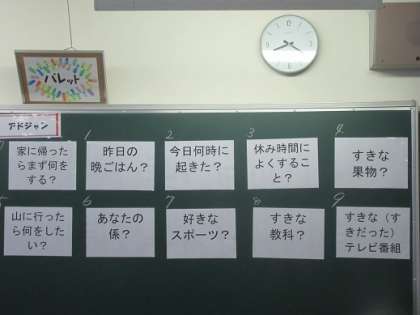 パレット
アドジャン
0
家に帰った
らまず何を
する？
1
昨日の
晩ごはん？
2
今日何時に
起きた？
3
休み時間に
よくするこ
と？
4
すきな
果物？
5
山に行った
ら何をした
い？
6
あなたの
係？
7
好きな
スポーツ？
8
すきな
教科？
9
すきな（す
きだった）
テレビ番組